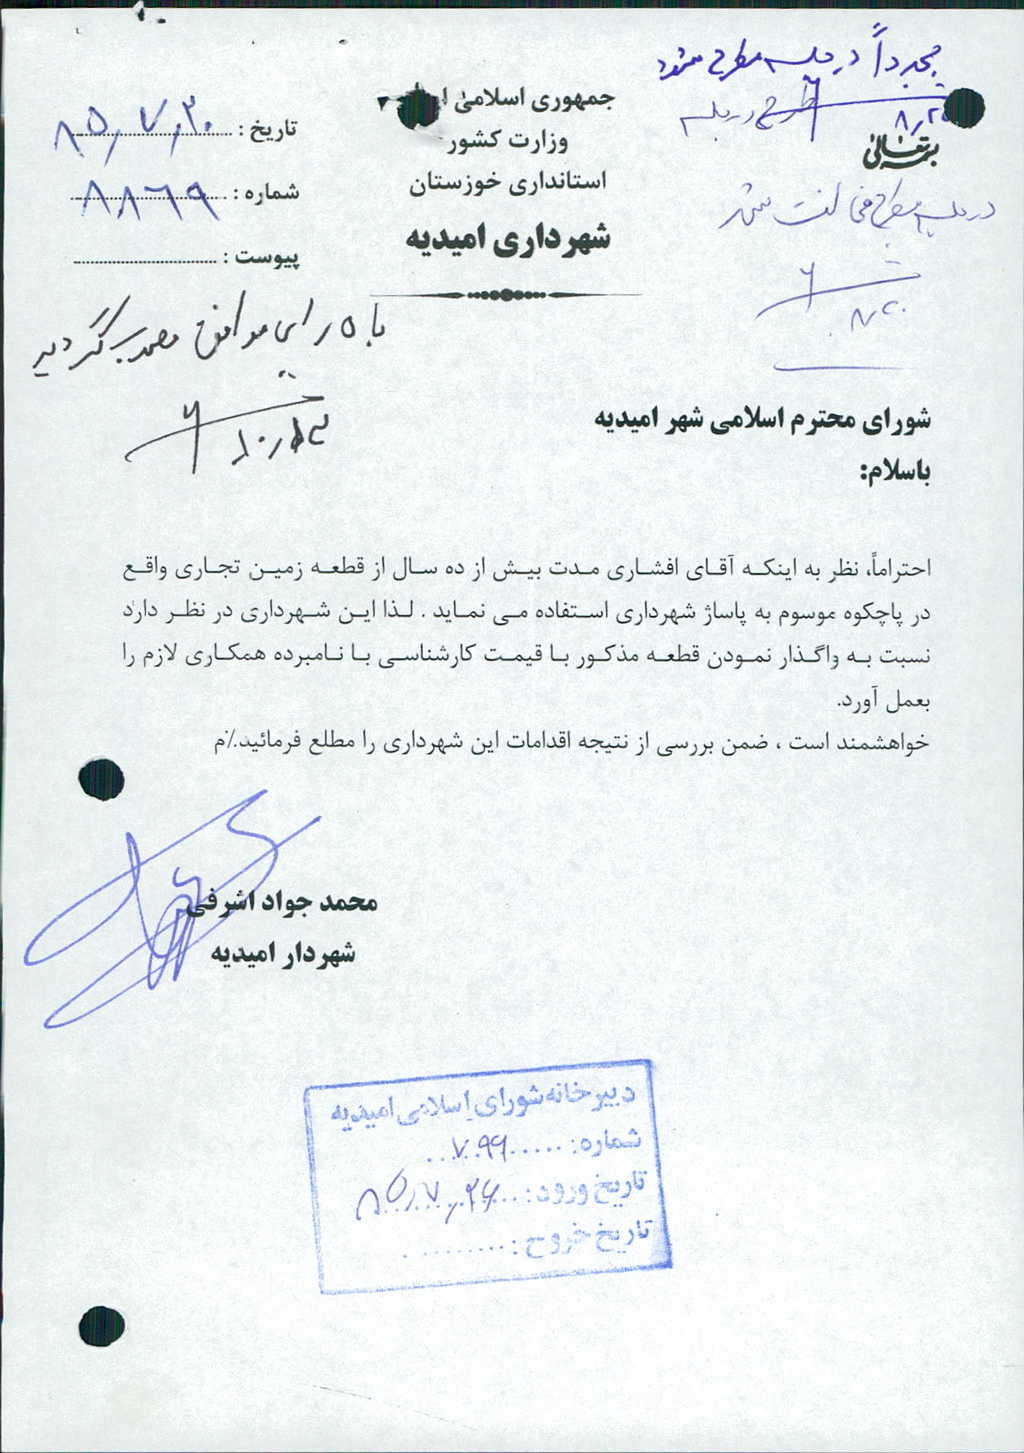 مجدداً در جلسه مطرح شود
طرح در جلسه
بسمه تعالی
در جلسه مطرح
جمهوری اسلامی
وزارت کشور
استانداری خوزستان
شهرداری امیدیه
تاریخ : ۸۵/۷/۳۰
شماره : ۸۸۶۹
پیوست :
با ۵ رای موافق مصوب گردید
شورای محترم اسلامی شهر امیدیه
باسلام:
احتراماً، نظر به اینکه آقای افشاری مدت بیش از ده سال از قطعه زمین تجاری واقع
در پاچکوه موسوم به پاساژ شهرداری استفاده می نماید . لذا این شهرداری در نظر دارد
نسبت به واگذار نمودن قطعه مذکور با قیمت کارشناسی با نامبرده همکاری لازم را
بعمل آورد.
خواهشمند است ، ضمن بررسی از نتیجه اقدامات این شهرداری را مطلع فرمائید./م
محمد جواد اشرفی
شهردار امیدیه
دبیرخانه شورای اسلامی امیدیه
شماره: ۷۹۹
تاریخ ورود:
تاریخ خروج: